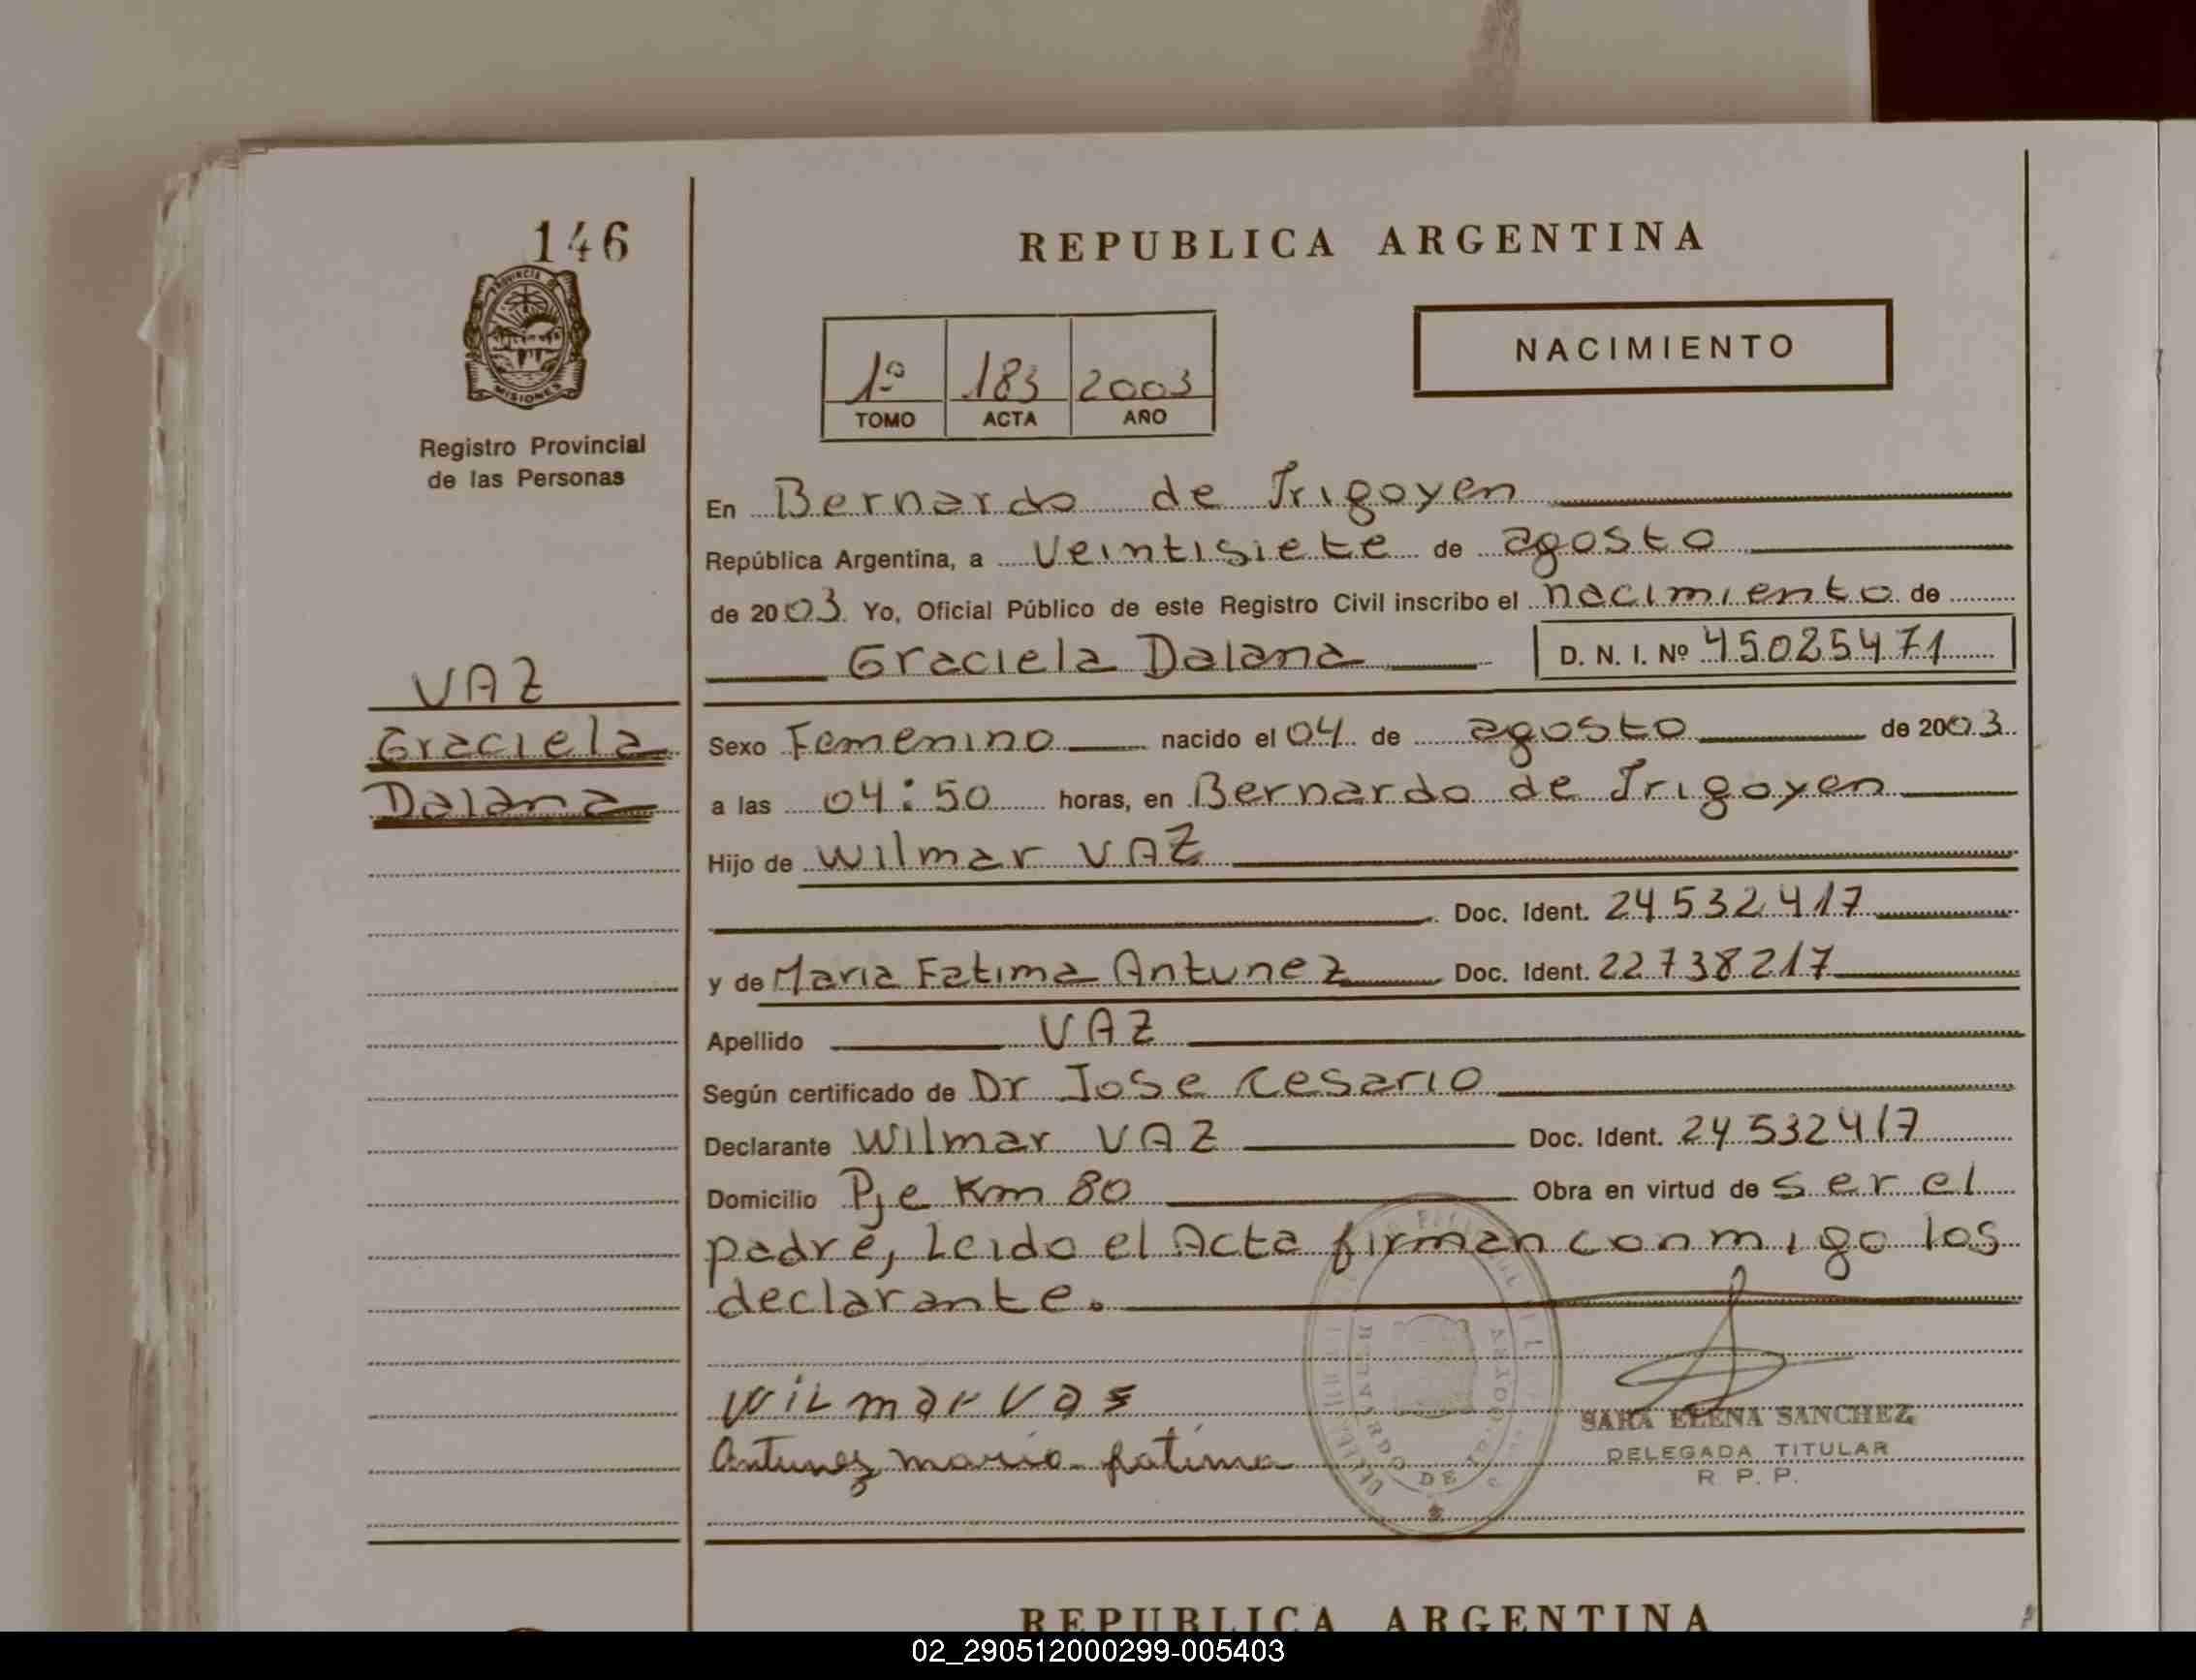 146
PROVINCIA DE
MISIONES
Registro Provincial
de las Personas
VAZ
Graciela
Dalana
REPUBLICA ARGENTINA
1º 183 2003
TOMO ACTA AÑO
NACIMIENTO
En Bernardo de Irigoyen
República Argentina, a veintisiete de agosto
de 2003 Yo, Oficial Público de este Registro Civil inscribo el nacimiento de
Graciela Dalana D. N. I. Nº 45025471
Sexo Femenino nacido el 04 de agosto de 2003
a las 04:50 horas, en Bernardo de Irigoyen
Hijo de Wilmar VAZ
Doc. Ident. 24532417
y de Maria Fatima Antunez Doc. Ident. 22738217
Apellido VAZ
Según certificado de Dr Jose Cesario
Declarante Wilmar VAZ Doc. Ident. 24532417
Domicilio Pje Km 80 Obra en virtud de ser el
padre, Leido el Acta firman conmigo los
declarante.
Wilmar Vas
Antunez maria fatima
SARA ELENA SANCHEZ
DELEGADA TITULAR
R. P. P.
REPUBLICA ARGENTINA
02_290512000299-005403